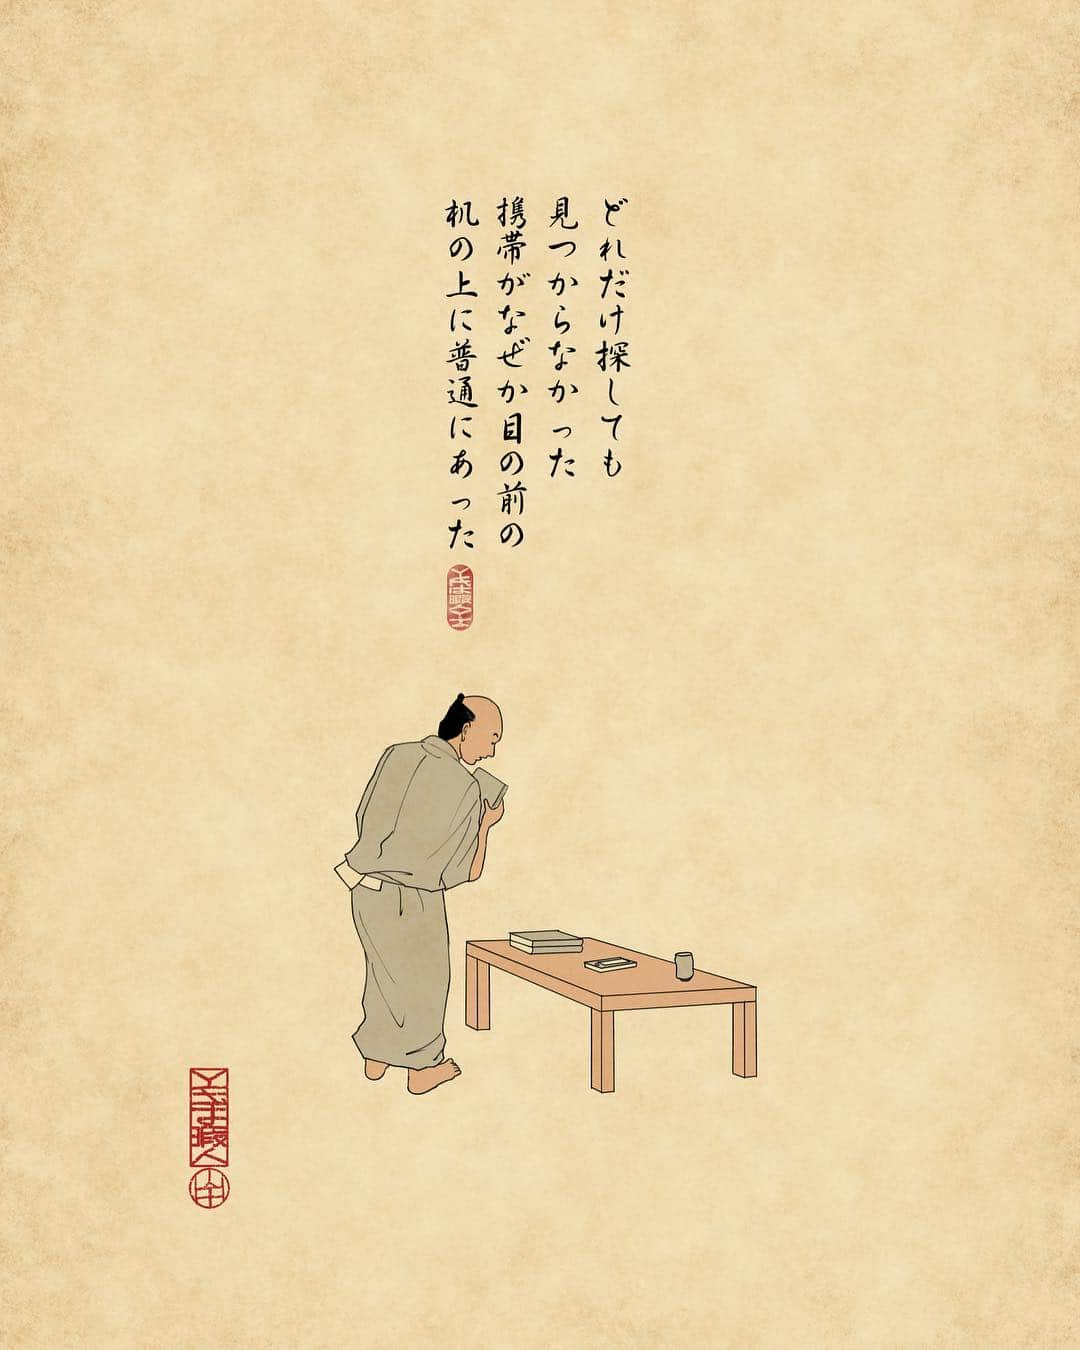 どれだけ探しても
見つからなかった
携帯がなぜか目の前の
机の上に普通にあった